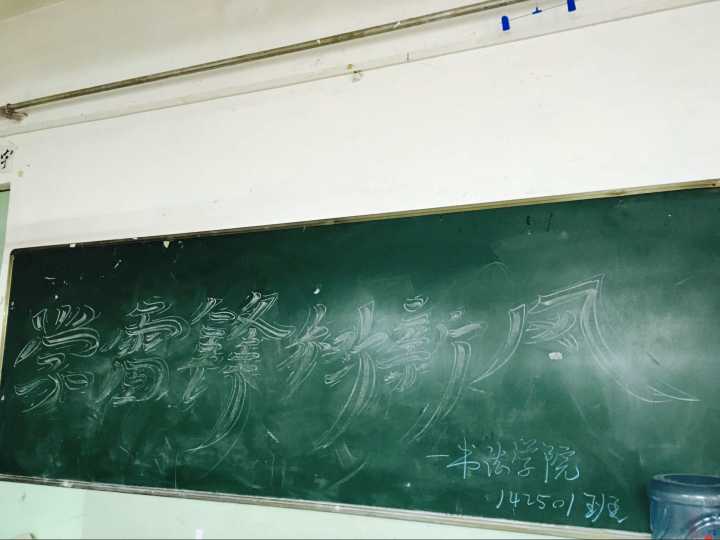 学雷锋树新风
一书法学院
142501班